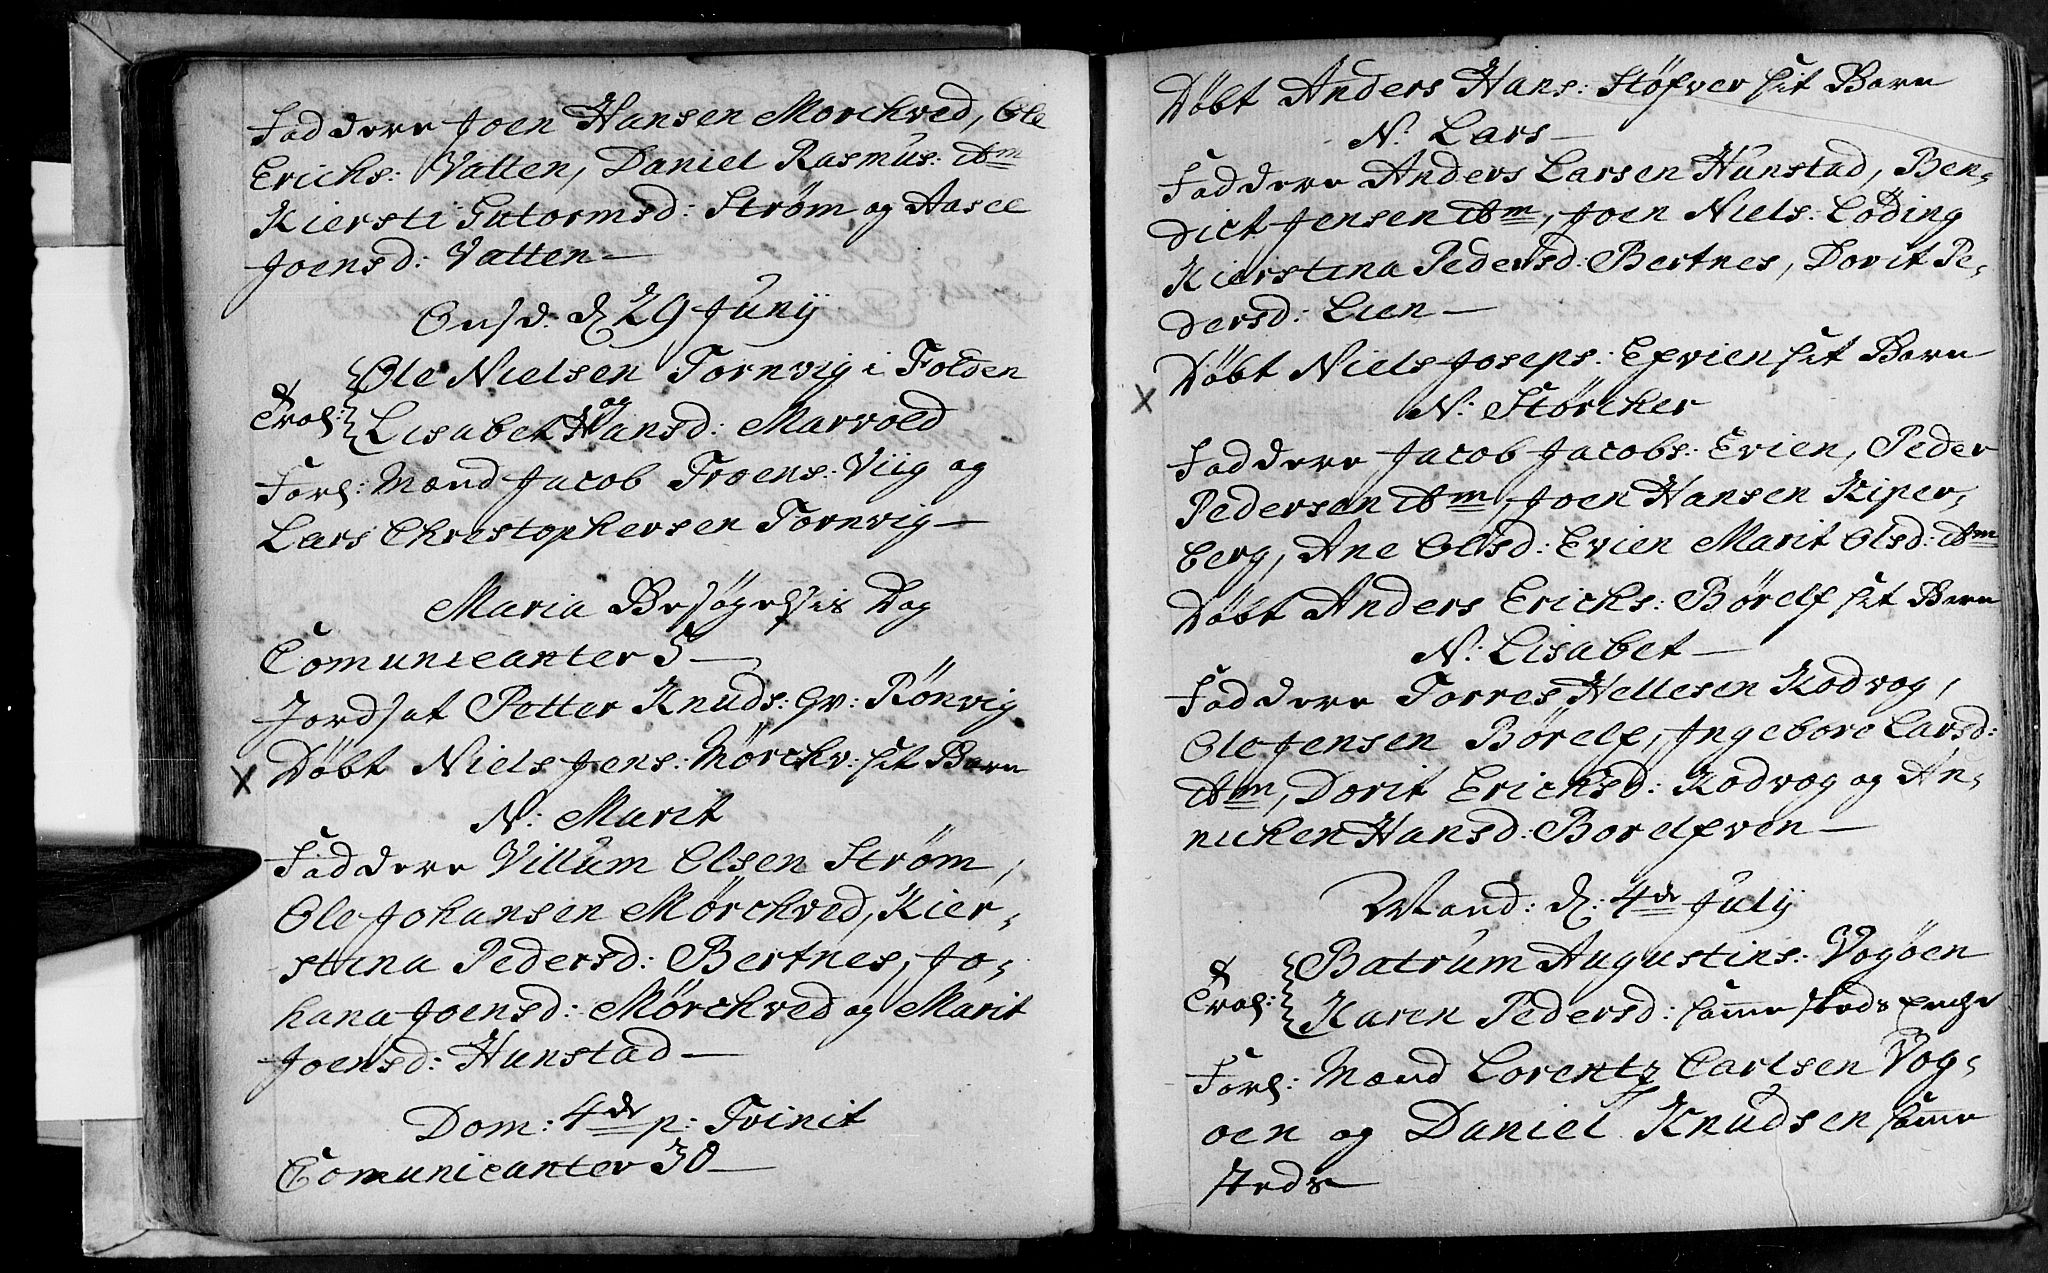 Faddere Joen Hansen Morchved, Ole
Erichs: Vatten, Daniel Rasmus: ibm
Kiersti Gutormsd: Strøm og Aasee
Joensd: Vatten —
Onsd: d 29 Junÿ
Ole Nielsen Tornvig i Folden
Trol: og
Lisabet Hansd: Marvold
Forl: Mænd Jacob Troens: Viig og
Lars Christophersen Tornvig —
Maria Besøgelsis Dag
Comunicanter 5 —
Jordsat Petter Knuds: Qv: Rønvig
X Døbt Niels Jens: Mørchv: sit Barn
N: Marit
Faddere Villum Olsen Strøm,
Ole Johansen Mørchved, Kier-
stina Pedersd: Bertnes, Jo-
hana Joensd: Mørchved og Marit
Joensd: Hunstad —
Dom: 4de p: Trinit
Comunicanter 30 —
Døbt Anders Hans: Støfver sit Barn
N: Lars —
Faddere Anders Larsen Hunstad, Ben-
dict Jensen ibm, Joen Niels: Løding
Kierstina Pedersd: Bertnes, Dorit Pe-
dersd: Lien —
X Døbt Niels Joseps: Efvien sit Barn
N: Størcker
Faddere Jacob Jacobs: Evien, Peder
Pedersen ibm, Joen Hansen Kiper-
berg, Ane Olsd: Evien Marit Olsd: ibm
Døbt Anders Erichs: Børelf sit Barn
N: Lisabet —
Faddere Torres Hellesen Kodvog,
Ole Jensen Børelf, Ingebore Larsd:
ibm, Dorit Erichsd: Kodvog og An-
nichen Hansd: Borelfven —
Mand: d: 4de Julÿ
Batrum Augustins: Vogøen
Trol:
Karen Pedersd: samme steds
Forl: Mænd Lorentz Carlsen Vog-
øen og Daniel Knudsen samme
steds